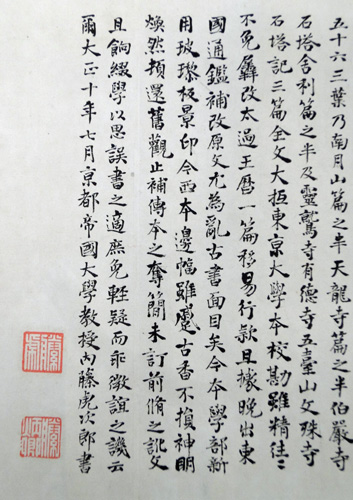 五十六三葉乃南月山篇之半天龍寺篇之半伯嚴寺
石塔舍利篇之半及靈鷲寺有德寺五臺山文殊寺
石塔記三篇全文大抵東京大學本校勘雖精往〻
不免羼改太過王曆一篇移易行款且據晚出東
國通鑑補改原文尤為亂古書面目矣今本學部新
用玻瓈板景印今西本邊幅雖蹙古香不損神明
煥然頓還舊觀止補傳本之奪簡未訂前脩之訛文
且餉綴學以思誤書之適庶免輕疑而乖徵誼之譏云
爾大正十年七月京都帝國大學教授內藤虎次郎書